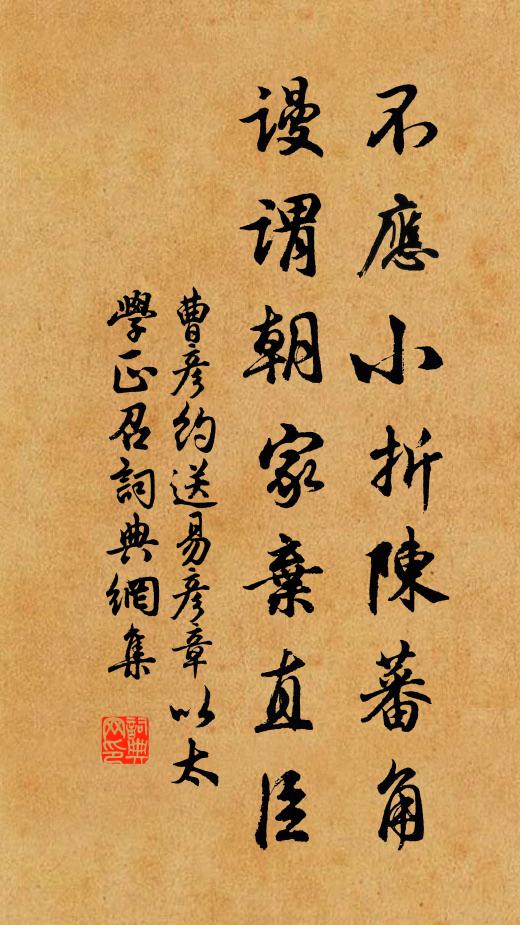 不應小折陳蕃角
謾謂朝家棄直臣
曹彥約送易彥章以太
學正召詞典網集
詞典網印